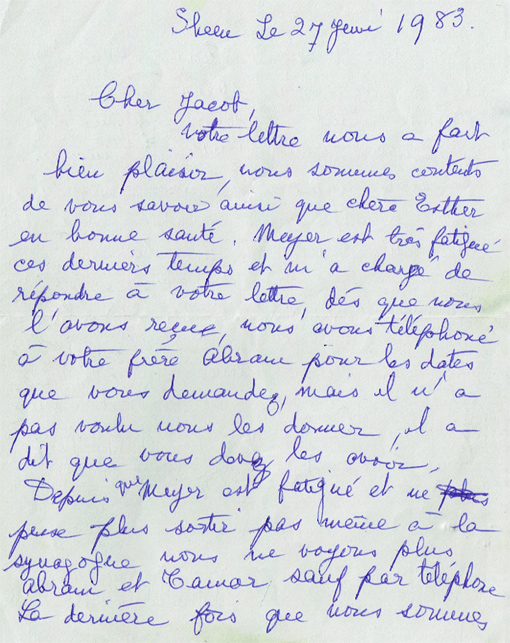 Le 27 1983.
Cher Jacob,
votre lettre nous a fait
bien plaisir, nous sommes contents
de vous savoir ainsi que chère Esther
en bonne santé. Meyer est très fatigué
ces derniers temps et m'a chargé de
répondre à votre lettre, dès que nous
l'avons reçue, nous avons téléphoné
à votre frère Abram pour les dates
que vous demandez, mais il n'a
pas voulu nous les donner, il a
dit que vous devez les avoir,
Depuis que Meyer est fatigué et ne plus
peuse plus sortir pas même à la
synagogue nous ne voyons plus
Abram et Tamar sauf par téléphone
La dernière fois que nous sommes